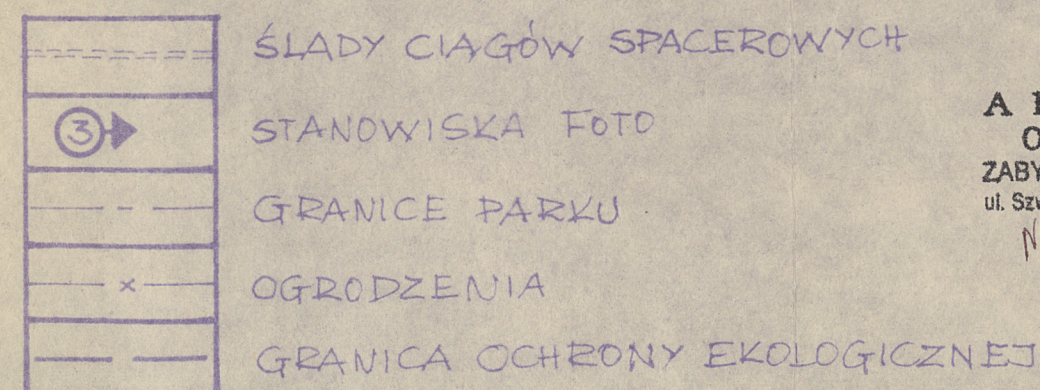 ŚLADY CIĄGÓW SPACEROWYCH
3 STANOWISKA FOTO
GRANICE PARKU
OGRODZENIA
GRANICA OCHRONY EKOLOGICZNEJ
A
O
ZABY
ul. Szw
N